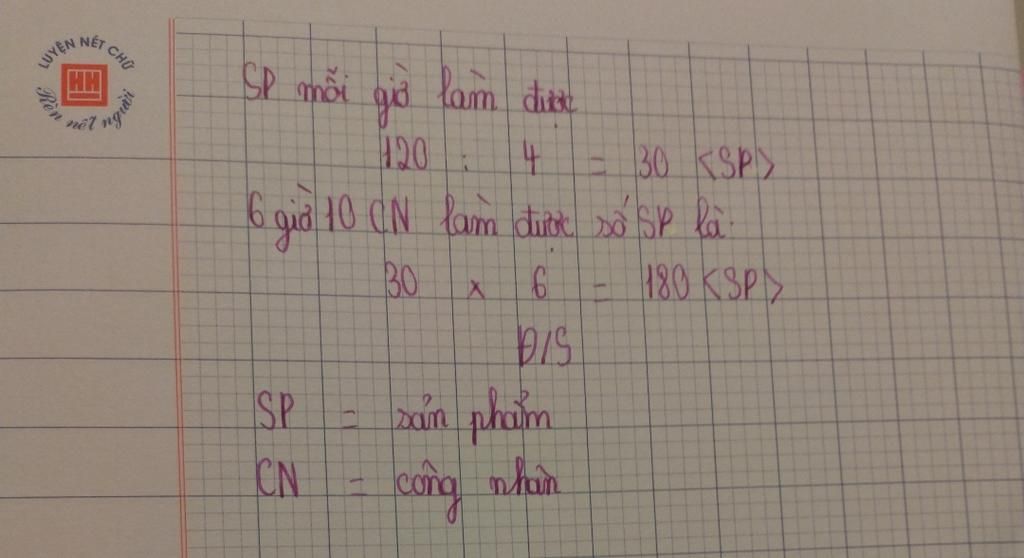 LUYỆN NÉT CHỮ
HH
Rèn nết người
SP mỗi giờ làm được
120 : 4 = 30 <SP>
6 giờ 10 CN làm được số SP là:
30 x 6 = 180 <SP>
Đ/S
SP = sản phẩm
CN = công nhân